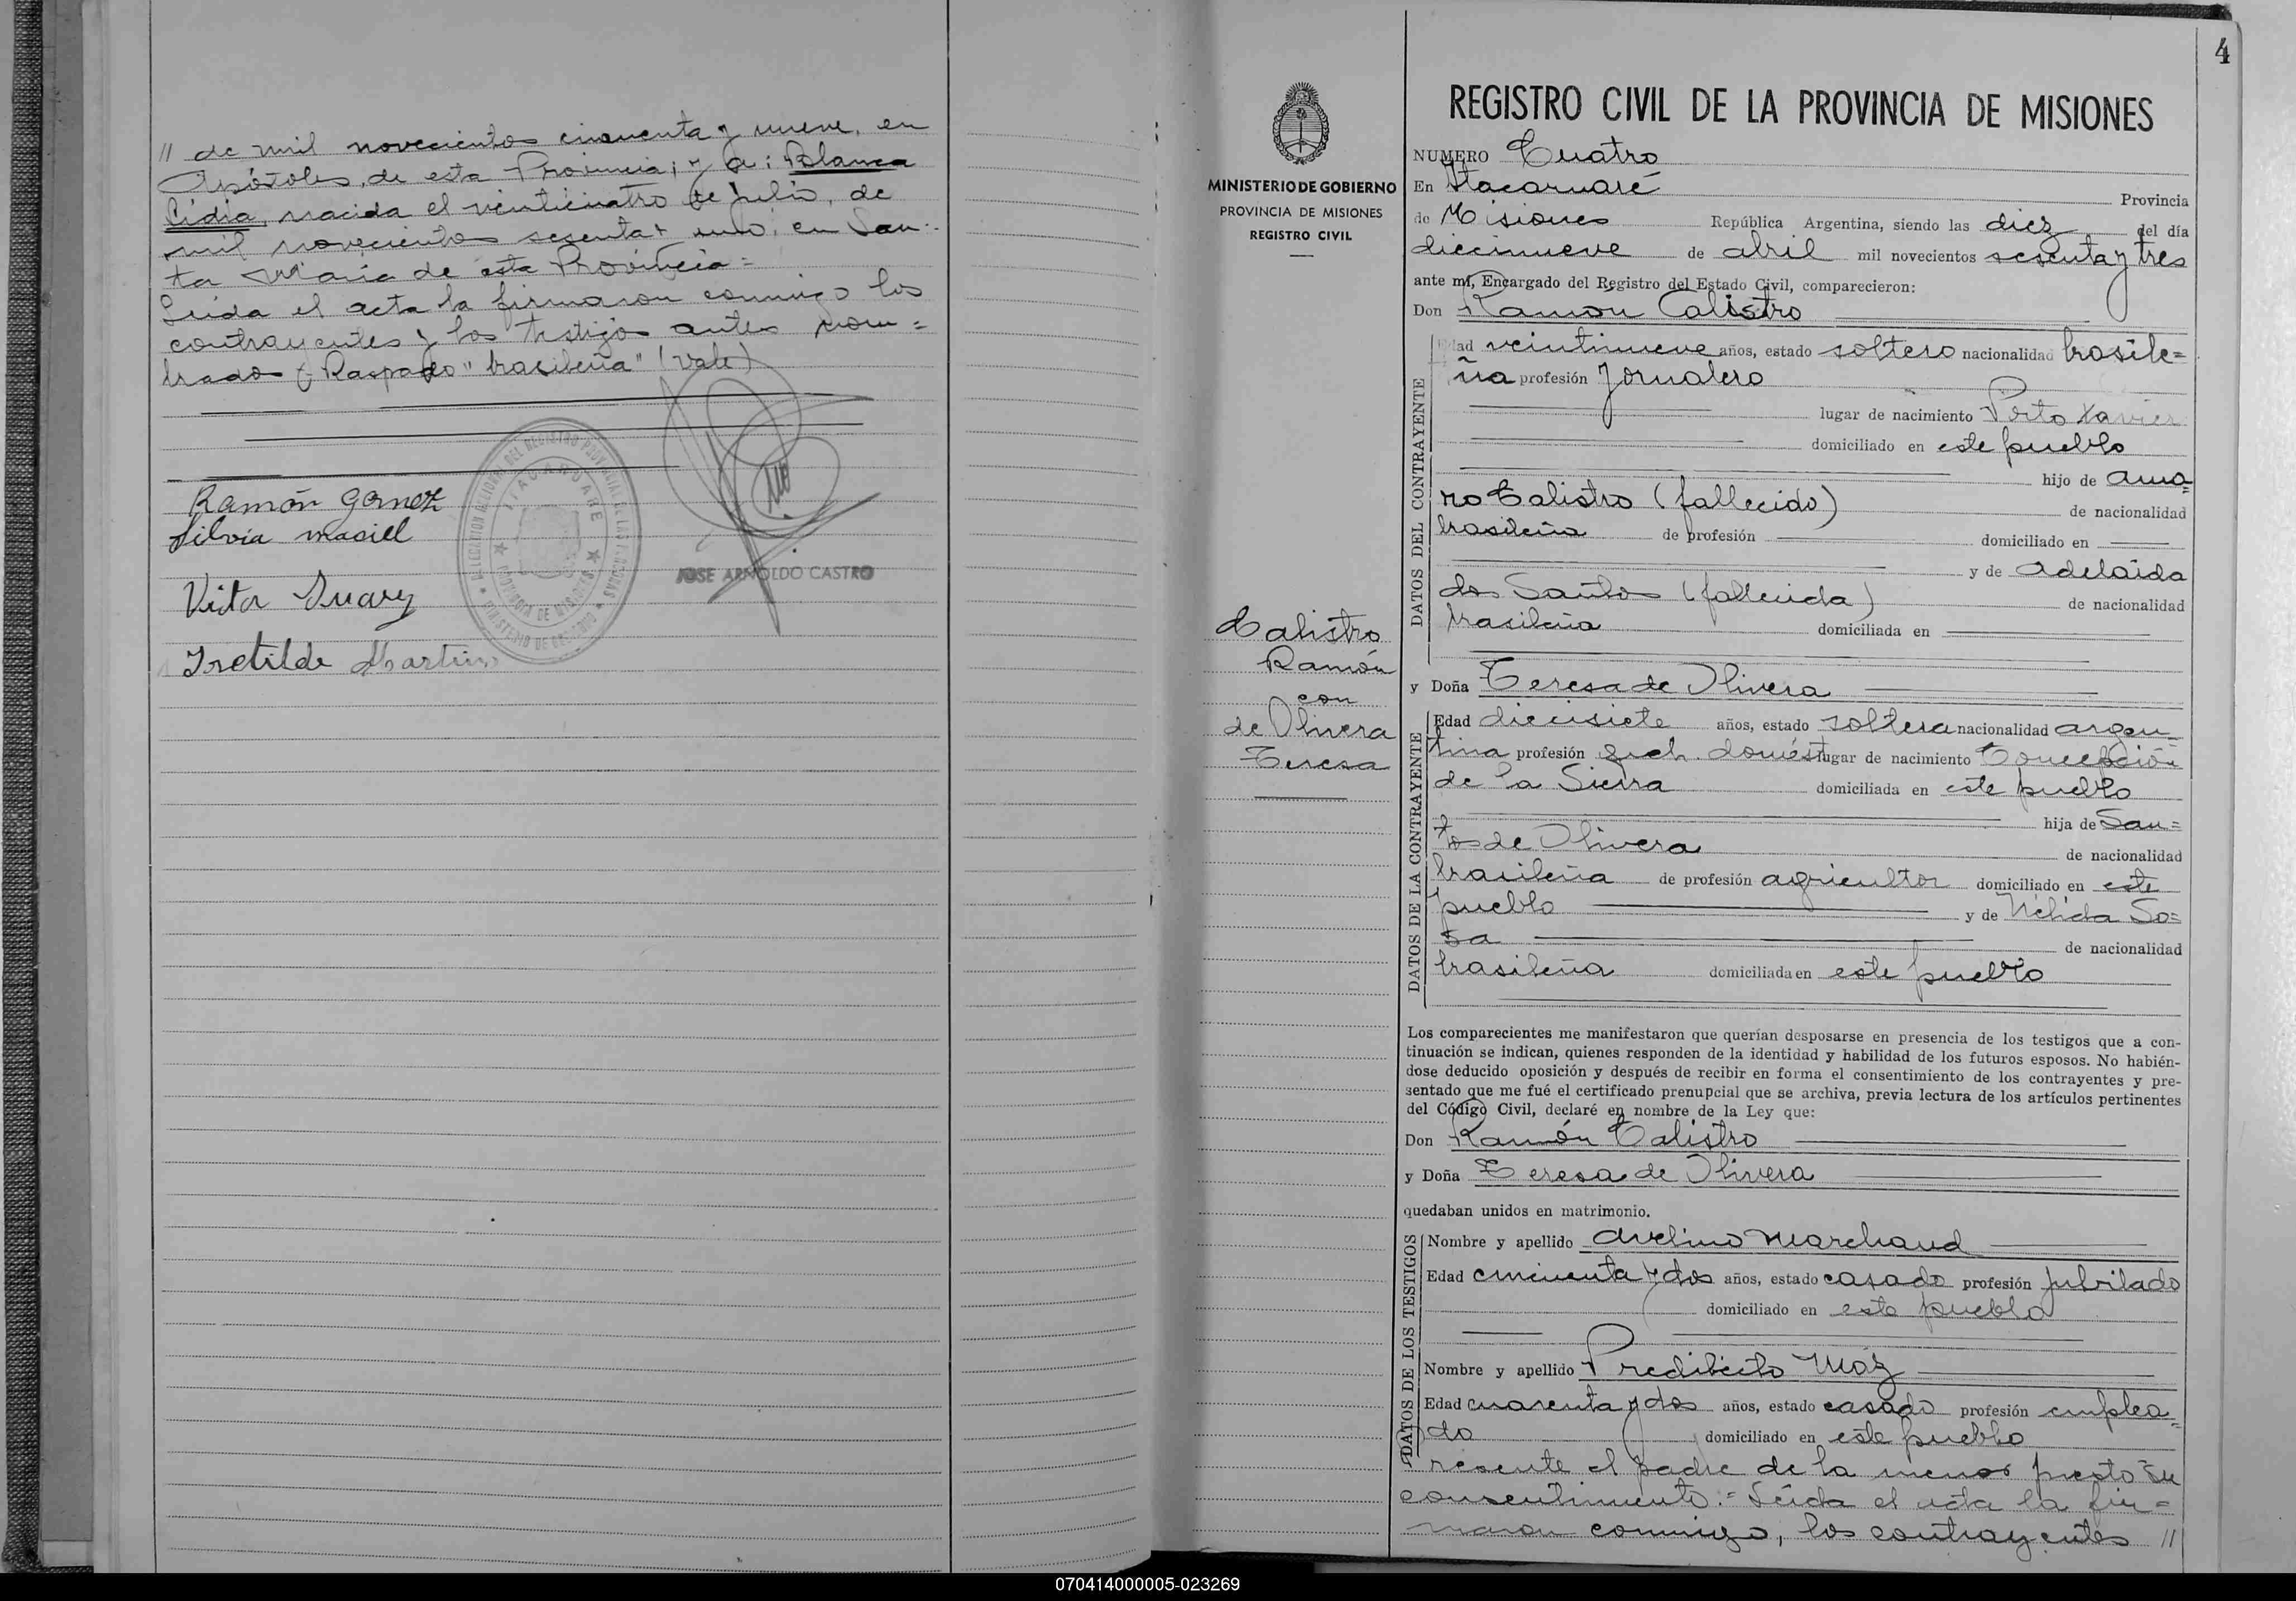 // de mil novecientos cincuenta y nueve, en
Apóstoles, de esta Provincia; y a: Blanca
Lidia, nacida el veinticuatro de julio, de
mil novecientos sesenta y uno; en San-
ta María de esta Provincia=
Leída el acta la firmaron conmigo los
contrayentes y los testigos antes nom=
brados (Raspado "brasileña" (vale)
Ramón Gomez
Silvia maciell
JOSE ARNOLDO CASTRO
Victor
Iretilde Martin
ITACARUARE
4
MINISTERIO DE GOBIERNO
PROVINCIA DE MISIONES
REGISTRO CIVIL
Calistro
Ramón
con
de Olivera
Teresa
REGISTRO CIVIL DE LA PROVINCIA DE MISIONES
NUMERO Cuatro
En Itacaruaré Provincia
de Misiones República Argentina, siendo las diez del día
diecinueve de abril mil novecientos sesenta y tres
ante mí, Encargado del Registro del Estado Civil, comparecieron:
Don Ramón Calistro
DATOS DEL CONTRAYENTE
Edad veintinueve años, estado soltero nacionalidad brasile=
ña profesión Jornalero
lugar de nacimiento Porto Xavier
domiciliado en este pueblo
hijo de Ama=
ro Calistro (fallecido) de nacionalidad
brasileña de profesión domiciliado en
y de Adelaida
dos Santos (fallecida) de nacionalidad
brasileña domiciliada en
y Doña Teresa de Olivera
DATOS DE LA CONTRAYENTE
Edad diecisiete años, estado soltera nacionalidad argen-
tina profesión queh. domést lugar de nacimiento Concepción
de la Sierra domiciliada en este pueblo
hija de San=
tos de Olivera de nacionalidad
brasileña de profesión agricultor domiciliado en este
pueblo y de Nélida So=
sa de nacionalidad
brasileña domiciliada en este pueblo
Los comparecientes me manifestaron que querían desposarse en presencia de los testigos que a con-
tinuación se indican, quienes responden de la identidad y habilidad de los futuros esposos. No habién-
dose deducido oposición y después de recibir en forma el consentimiento de los contrayentes y pre-
sentado que me fué el certificado prenupcial que se archiva, previa lectura de los artículos pertinentes
del Código Civil, declaré en nombre de la Ley que:
Don Ramón Calistro
y Doña Teresa de Olivera
quedaban unidos en matrimonio.
DATOS DE LOS TESTIGOS
Nombre y apellido Avelino Marchand
Edad cincuenta y dos años, estado casado profesión jubilado
domiciliado en este pueblo
Nombre y apellido Predilecto Moz
Edad cuarenta y dos años, estado casado profesión emplea=
do domiciliado en este pueblo
Presente el padre de la menor presto su
consentimiento.= Leída el acta la fir=
maron conmigo, los contrayentes //
070414000005-023269